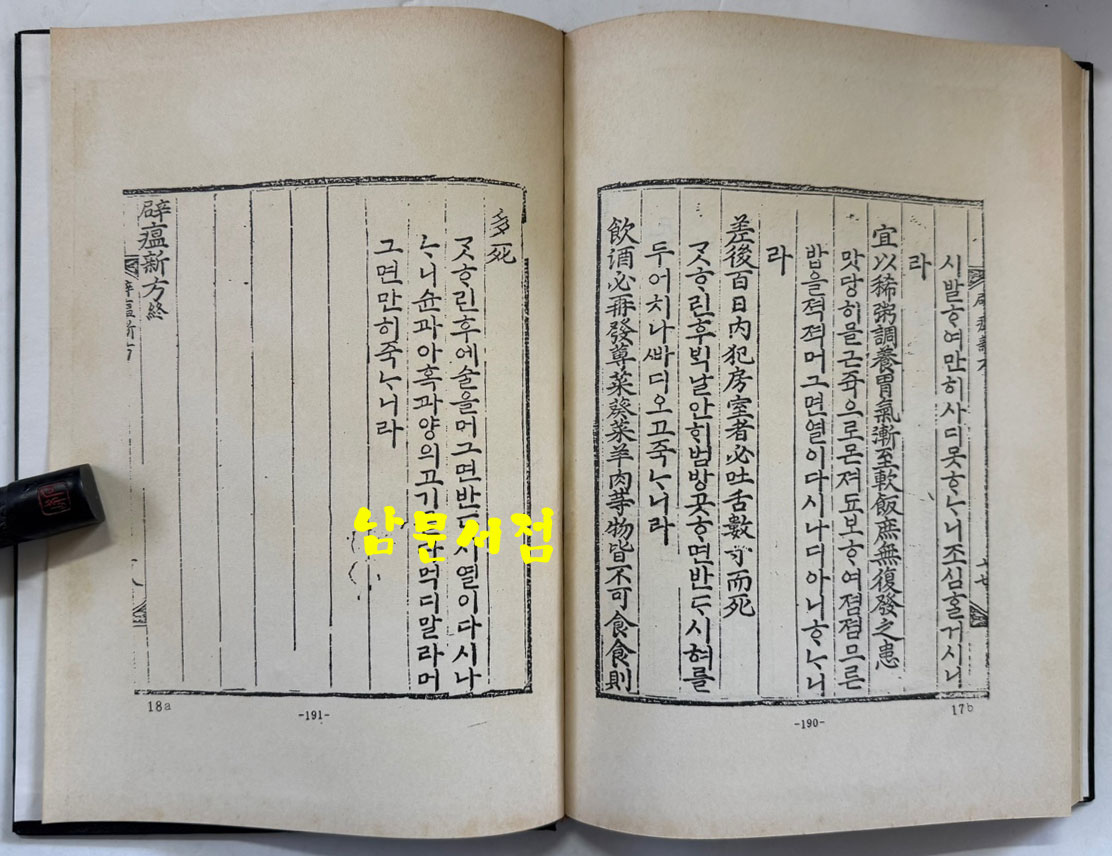 시발ᄒᆞ여만히사디못ᄒᆞᄂᆞ니조심ᄒᆞᆯ거시니
라
宜以稀粥調養胃氣漸至軟飯庶無復發之患
맛당히믈근쥭으로몬져됴보ᄒᆞ여졈졈므른
밥을젹젹머그면열이다시나디아니ᄒᆞᄂᆞ니
라
差後百日內犯房室者必吐舌數寸而死
ᄀᆞᆺᄒᆞ린후ᄇᆡᆨ날안히범방곳ᄒᆞ면반ᄃᆞ시혀를
두어치나ᄲᅡ디오고죽ᄂᆞ니라
飮酒必再發蓴菜葵菜羊肉等物皆不可食食則
17b
-190-
多死
ᄀᆞᆺᄒᆞ린후에술을머그면반ᄃᆞ시열이다시나
ᄂᆞ니슌과아혹과양의고기 먹디말라머
그면만히죽ᄂᆞ니라
辟瘟新方終
辟瘟新方
18a
-191-
남문서점